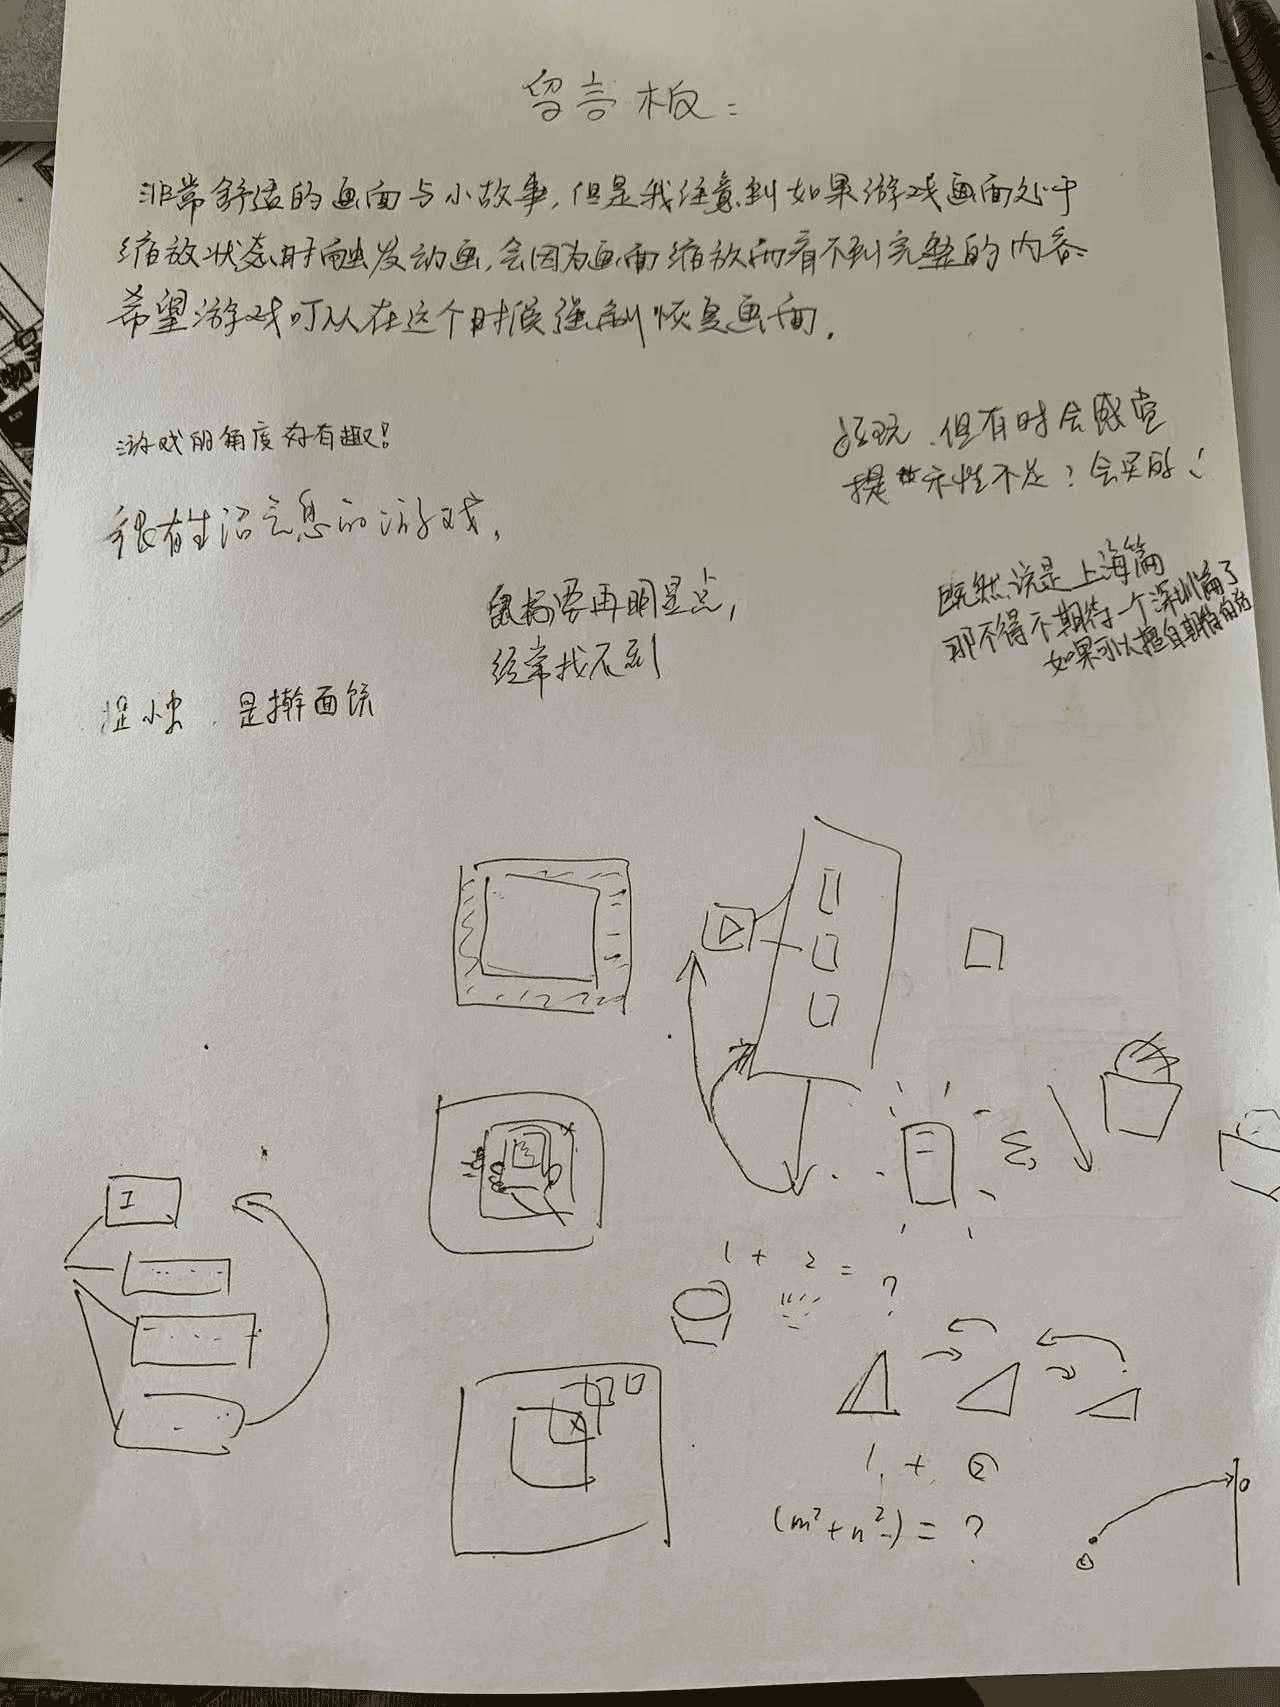 留言板：
非常舒适的画面与小故事，但是我注意到如果游戏画面处于
缩放状态时触发动画，会因为画面缩放而看不到完整的内容
希望游戏可以在这个时候强制恢复画面。
游戏的角度好有趣！
很有生活气息的游戏。
好玩，但有时会感觉
提示性不足？会买的！
鼠标要再明显点，
经常找不到
既然说是上海篇
那不得不期待一个深圳篇了
如果可以擅自期待的话
是擀面饼
1 + 2 = ?
1 + ②
(m²+n²) = ?